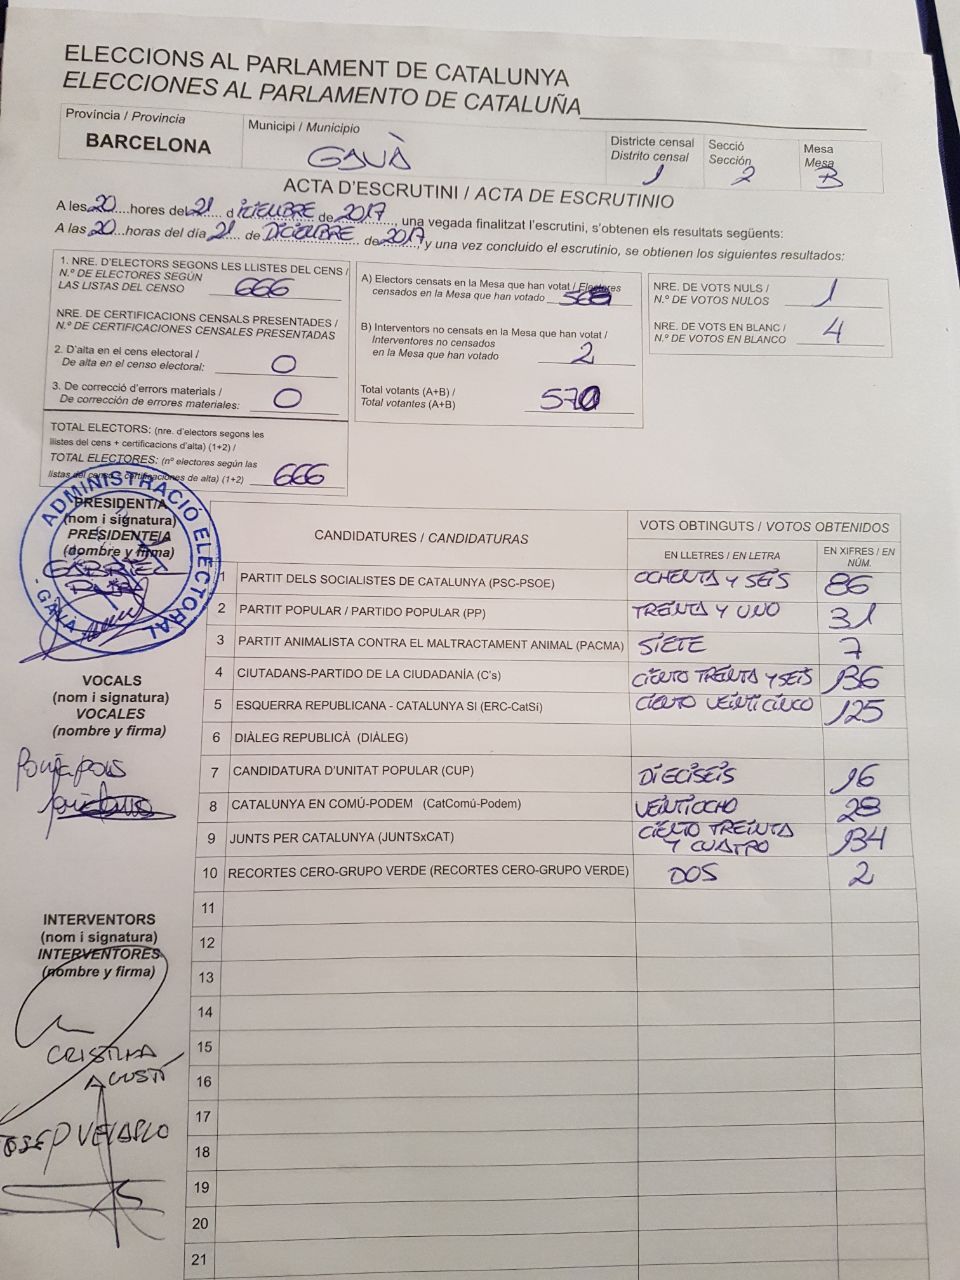 ELECCIONS AL PARLAMENT DE CATALUNYA
ELECCIONES AL PARLAMENTO DE CATALUÑA
Província / Provincia
BARCELONA
Municipi / Municipio
GAVÀ
Districte censal
Distrito censal
1
Secció
Sección
2
Mesa
Mesa
B
ACTA D'ESCRUTINI / ACTA DE ESCRUTINIO
A les 20 hores del 21 d ICIEMBRE de 2017, una vegada finalitzat l'escrutini, s'obtenen els resultats següents:
A las 20 horas del día 21 de DICIEMBRE de 2017 y una vez concluido el escrutinio, se obtienen los siguientes resultados:
1. NRE. D'ELECTORS SEGONS LES LLISTES DEL CENS /
N.º DE ELECTORES SEGÚN
LAS LISTAS DEL CENSO 666
NRE. DE CERTIFICACIONS CENSALS PRESENTADES /
N.º DE CERTIFICACIONES CENSALES PRESENTADAS
2. D'alta en el cens electoral /
De alta en el censo electoral: 0
3. De correcció d'errors materials /
De corrección de errores materiales: 0
TOTAL ELECTORS: (nre. d'electors segons les
llistes del cens + certificacions d'alta) (1+2) /
TOTAL ELECTORES: (nº electores según las
listas del censo + certificaciones de alta) (1+2) 666
A) Electors censats en la Mesa que han votat / Electores
censados en la Mesa que han votado 568
B) Interventors no censats en la Mesa que han votat /
Interventores no censados
en la Mesa que han votado 2
Total votants (A+B) /
Total votantes (A+B) 570
NRE. DE VOTS NULS /
N.º DE VOTOS NULOS 1
NRE. DE VOTS EN BLANC /
N.º DE VOTOS EN BLANCO 4
ADMINISTRACIÓ ELECTORAL
- GAVÀ -
PRESIDENT/A
(nom i signatura)
PRESIDENTE/A
(nombre y firma)
GABRIEL
VOCALS
(nom i signatura)
VOCALES
(nombre y firma)
INTERVENTORS
(nom i signatura)
INTERVENTORES
(nombre y firma)
CRISTINA
AGUSTÍ
JOSEP VELASCO
CANDIDATURES / CANDIDATURAS
VOTS OBTINGUTS / VOTOS OBTENIDOS
EN LLETRES / EN LETRA
EN XIFRES / EN
NÚM.
1 PARTIT DELS SOCIALISTES DE CATALUNYA (PSC-PSOE) OCHENTA Y SEIS 86
2 PARTIT POPULAR / PARTIDO POPULAR (PP) TREINTA Y UNO 31
3 PARTIT ANIMALISTA CONTRA EL MALTRACTAMENT ANIMAL (PACMA) SIETE 7
4 CIUTADANS-PARTIDO DE LA CIUDADANÍA (C's) CIENTO TREINTA Y SEIS 136
5 ESQUERRA REPUBLICANA - CATALUNYA SI (ERC-CatSí) CIENTO VEINTICINCO 125
6 DIÀLEG REPUBLICÀ (DIÀLEG)
7 CANDIDATURA D'UNITAT POPULAR (CUP) DIECISEIS 16
8 CATALUNYA EN COMÚ-PODEM (CatComú-Podem) VEINTIOCHO 28
9 JUNTS PER CATALUNYA (JUNTSxCAT) CIENTO TREINTA Y CUATRO 134
10 RECORTES CERO-GRUPO VERDE (RECORTES CERO-GRUPO VERDE) DOS 2
11
12
13
14
15
16
17
18
19
20
21